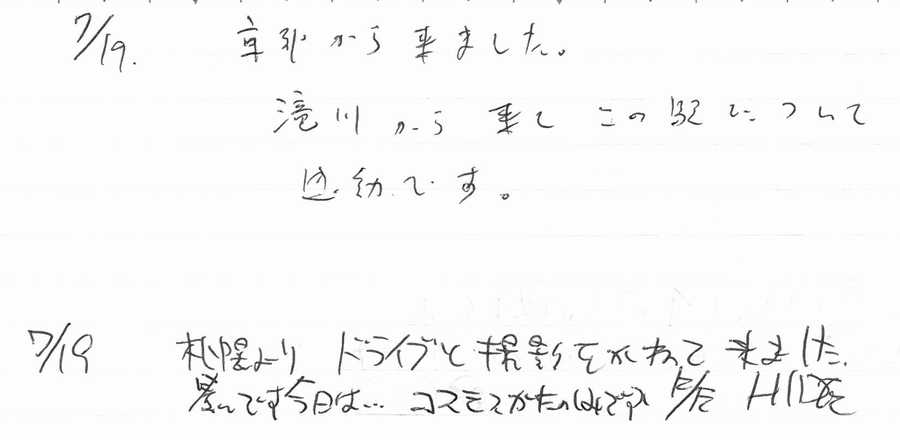 7/19. 京都から来ました。
滝川から来てこの駅について
感動です。
7/19 札幌より ドライブと撮影をかねて来ました。
暑いです今日は… コスモスがたのしみです